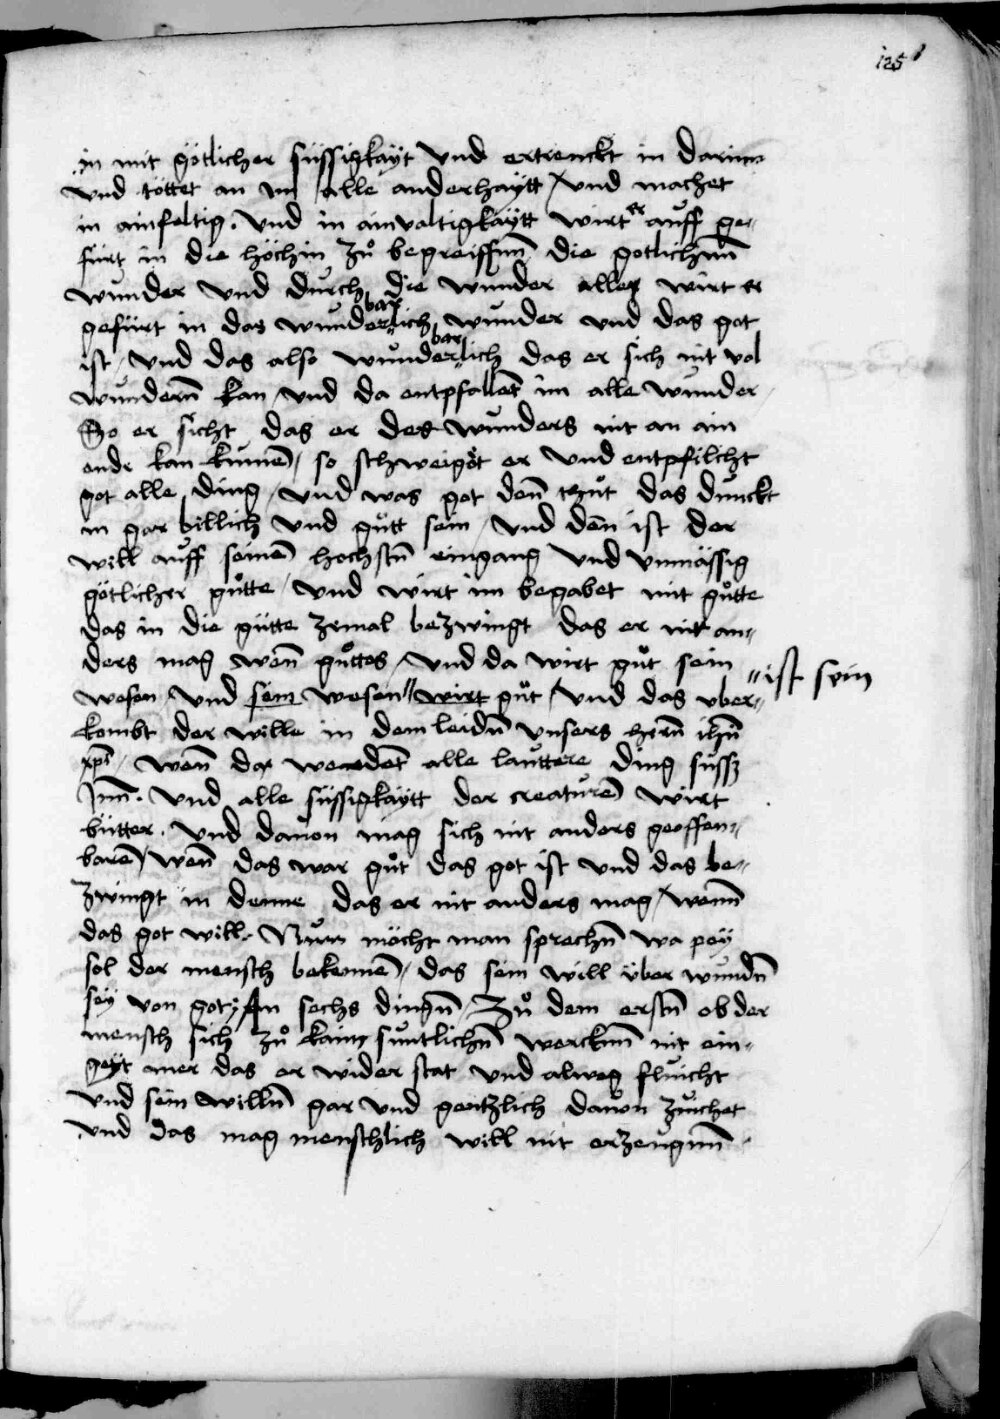 125
in mit götlicher süssigkayt vnd ertrenckt in darinn
vnd töttet an im alle anderhaytt / vnd machet
in ainfeltig. vnd in ainvaltigkaytt wirt er auff ge„
fürt in die höchin zů begreiffun̄ die gotlichn̄
wunder vnd durch die wunder alles wirt er
gefürt in das wunderbarlich wunder vnd das got
ist / vnd das also wunderbarlich das er sich nit vol
wundern̄ kan / vnd da entpfallet im alle wunder /
So er sicht das er des wunders nit an ain
ende kan kumē / so schweigőt er vnd entpfilcht
got alle ding / vnd was got den̄ thůt das dunckt
in gar billich vnd gůtt sein / vnd den̄ ist der
will auff seinē hochstn̄ eingang vnd vnmässig
götlicher gůtte / vnd wirt im begabet mit gůtte
das in die gütte zemal bezwingt das er nit an„
ders mag wen̄ gůttes / vnd da wirt gůt sein
wesen / vnd sein wesen " wirt gůt / vnd das vber„
" ist sein
kombt der wille in dem leidn̄ vnsers hern̄ ihū
xpi / wen̄ da werdent alle lauttere ding süssz
Im̄. vnd alle süssigkaytt der creaturē wirt
bütter. vnd dauon mag sich nit anders geoffen„
barē / wen̄ das war gůt das got ist vnd das be„
zwingt in denne das er nit anders mag / wenn̄
das got will. Nun möcht man sprechn̄ wa pey
sol der mensch bekenne͂ / das sein will über wundn̄
sey von got; An sechs dingn̄ / Zů dem erstn̄ ob der
mensch sich zů kainē suntlichn̄ werckenn̄ nit ein„
geyt mer das er wider stat vnd alweg fluicht
vnd sein willn̄ gar vnd gentzlich dauon zuichet
vnd das mag menschlich will nit erzeugnn̄